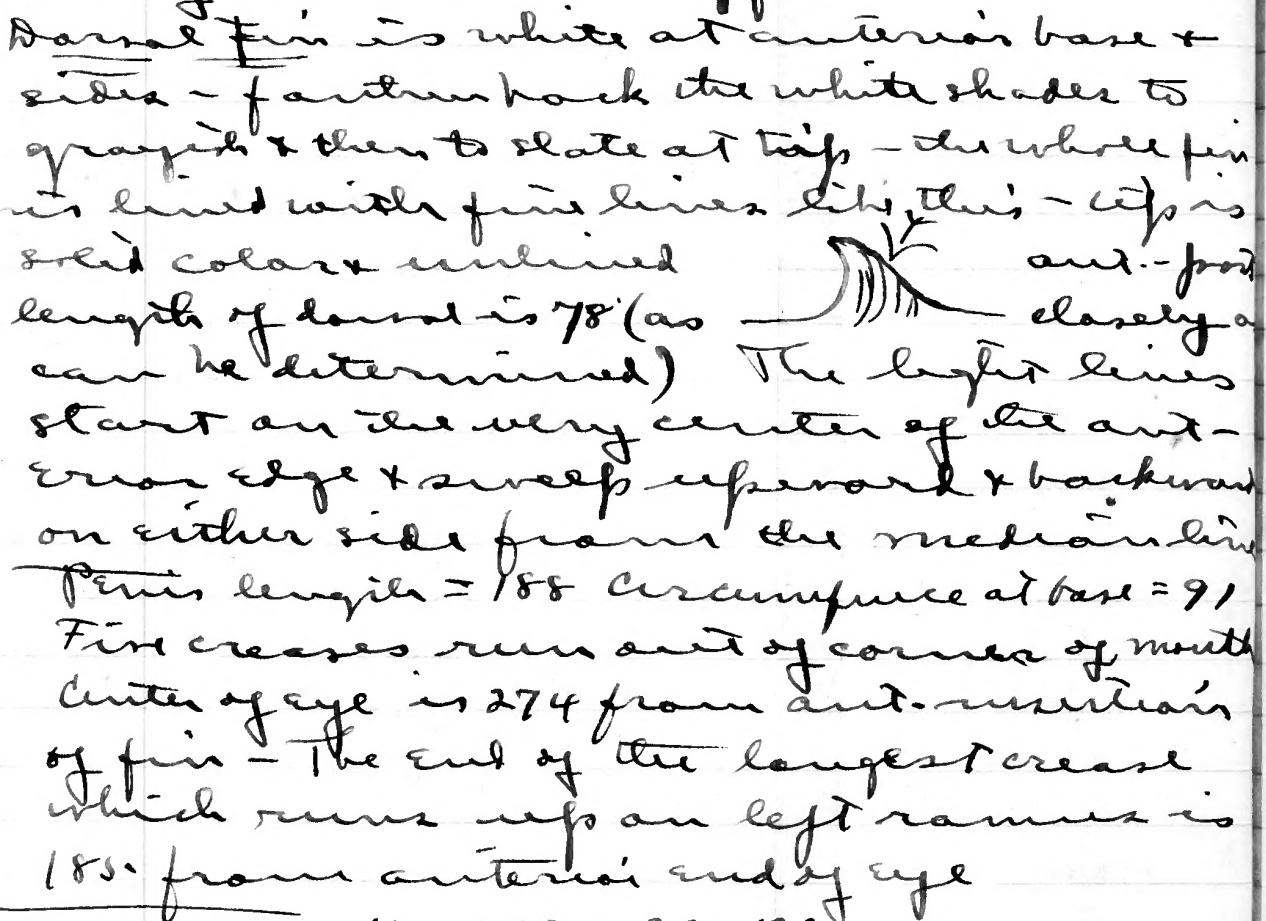 Dorsal Fin is white at anterior base &
sides - farther back the white shades to
grayish & then to slate at tip - the whole fin
is lined with fine lines like this - tip is
solid color & unlined ant. - post
length of dorsal is 78 (as closely a
can be determined) The light lines
start on the very center of the ant-
erior edge & sweep upward & backward
on either side from the median line
Penis length = 188 Circumference at base = 91
Five creases run out of corner of mouth
Center of eye is 274 from ant. insertion
of fin - The end of the longest crease
which runs up on left ramus is
185. from anterior end of eye